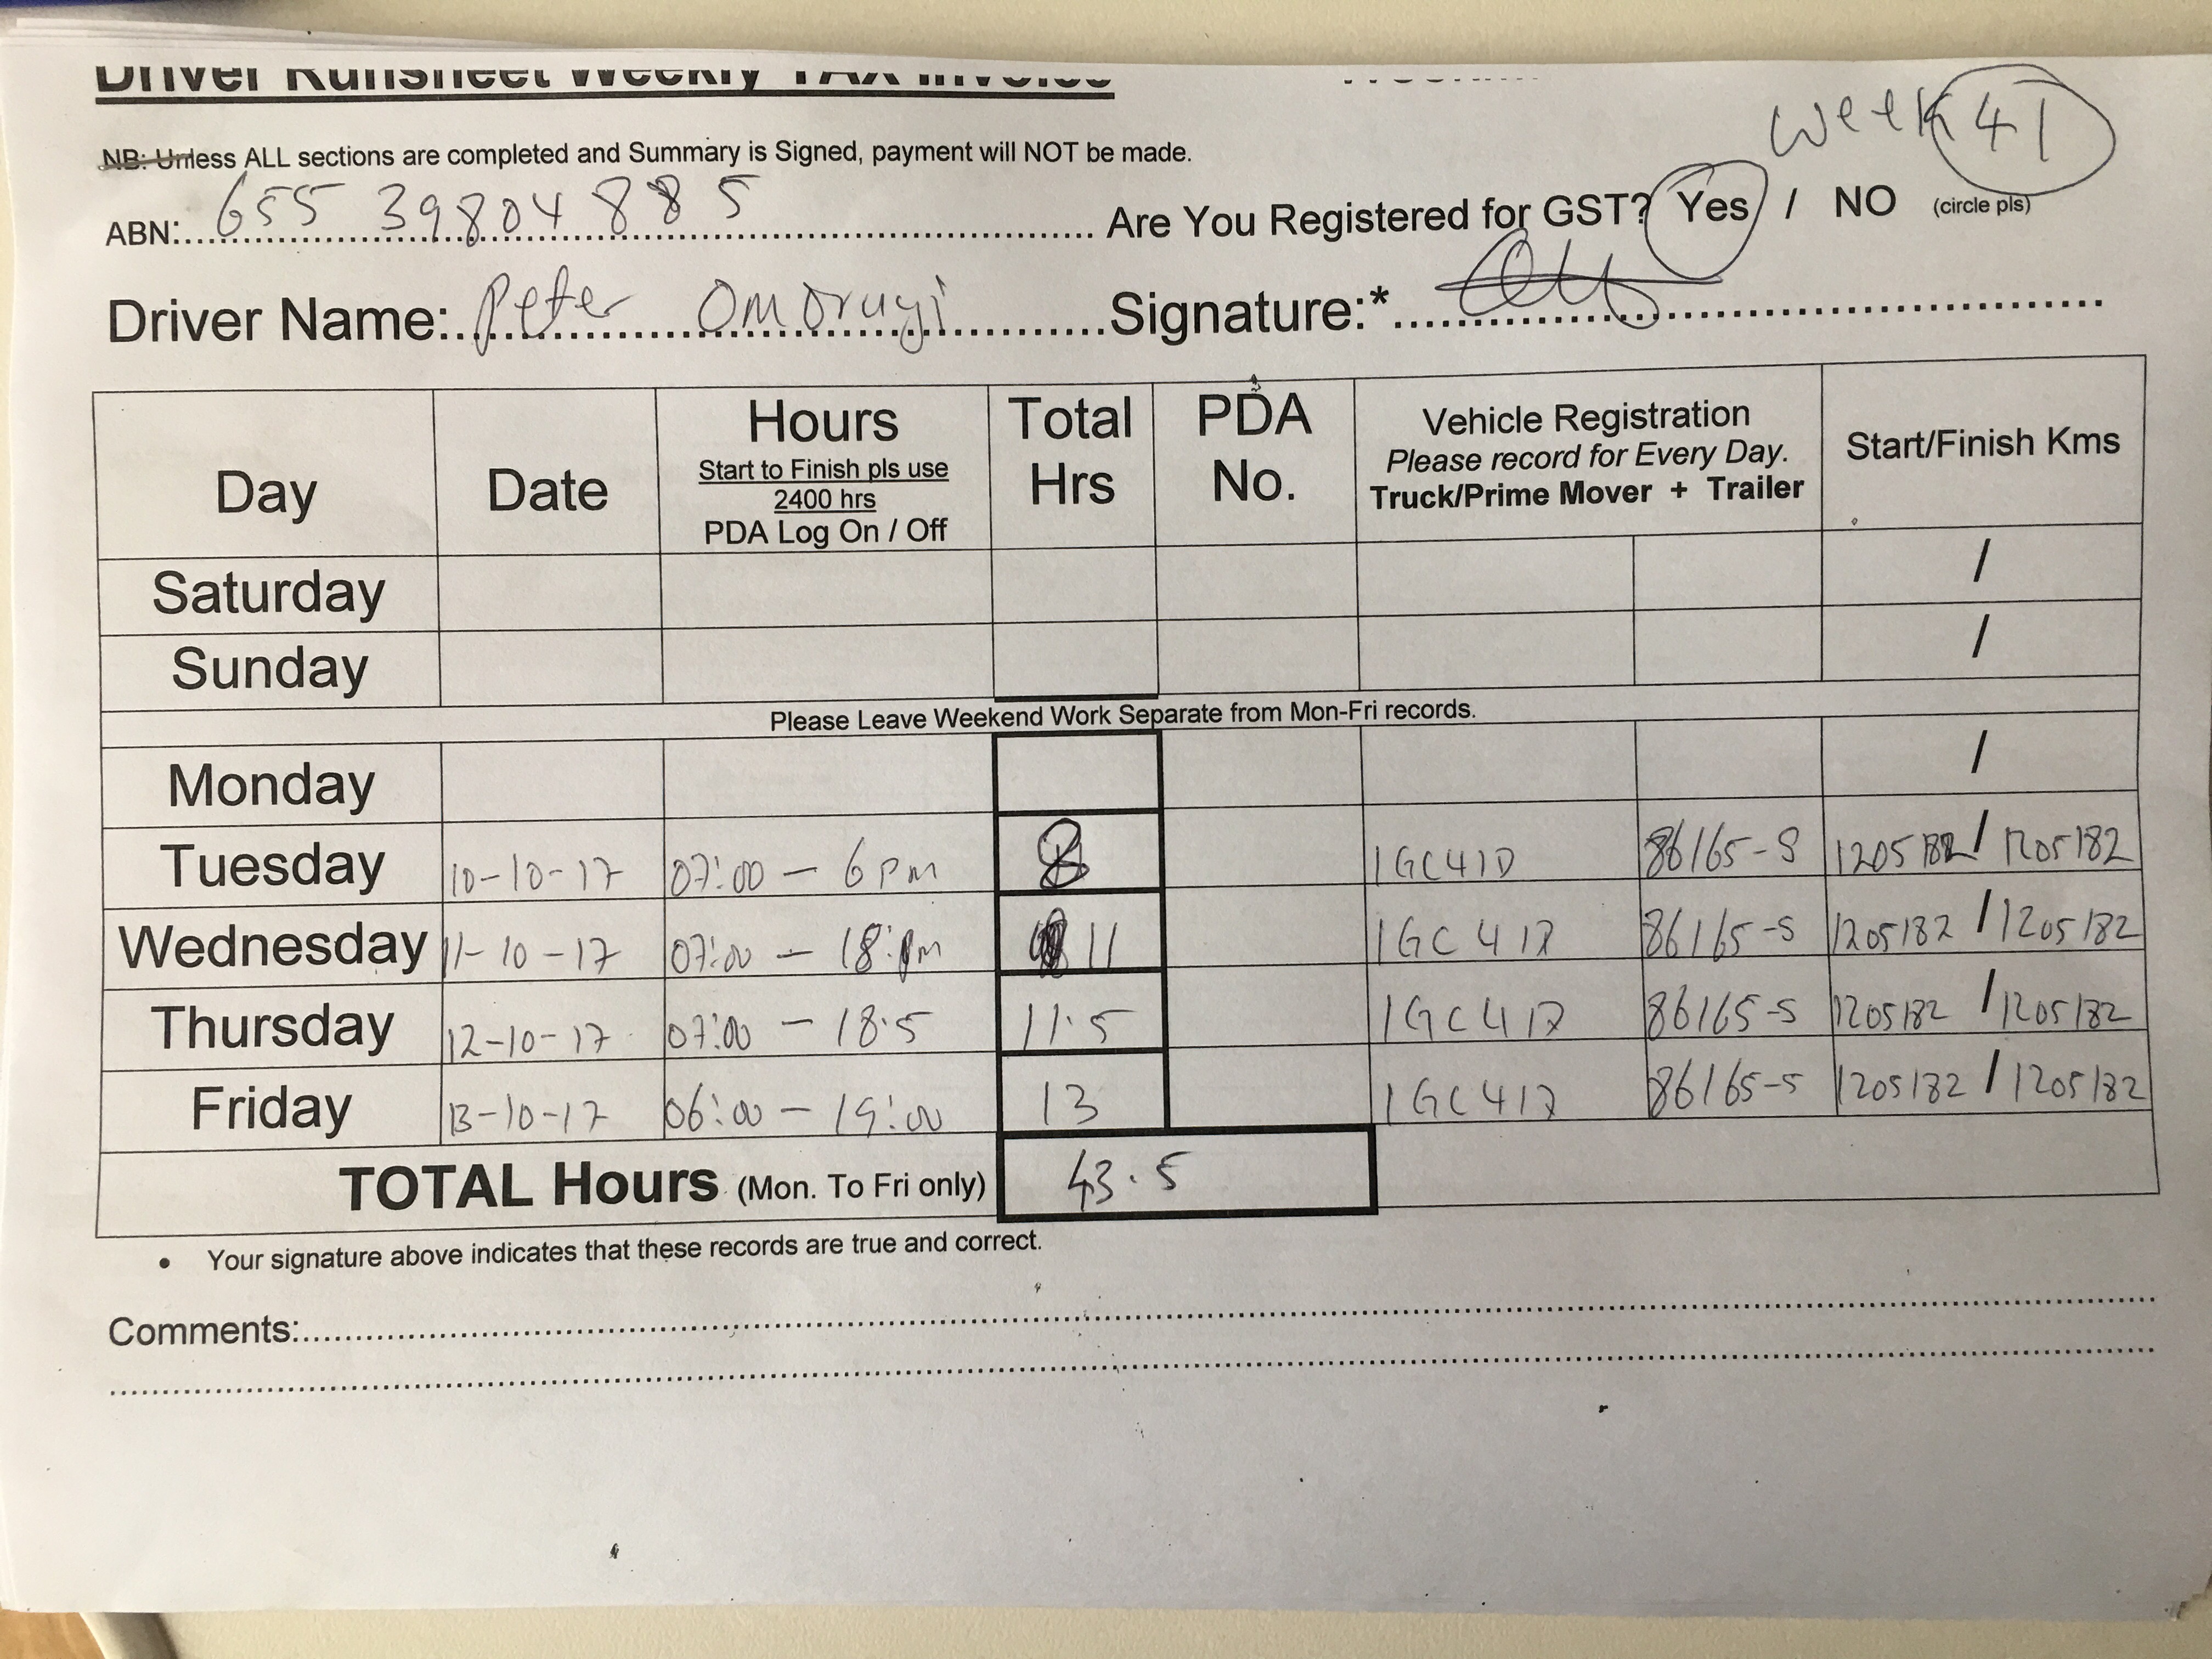 Driver Runsheet Weekly TAX Invoice
Week 41
NB: Unless ALL sections are completed and Summary is Signed, payment will NOT be made.
ABN: 655 39804 885 Are You Registered for GST? Yes / NO (circle pls)
Driver Name: Peter Omoruyi Signature:*
Day Date Hours Start to Finish pls use 2400 hrs PDA Log On / Off Total Hrs PDA No. Vehicle Registration Please record for Every Day. Truck/Prime Mover + Trailer Start/Finish Kms
Saturday /
Sunday /
Please Leave Weekend Work Separate from Mon-Fri records.
Monday /
Tuesday 10-10-17 07:00 - 6pm 8 86165-S 1205182 / 1205182
Wednesday 11-10-17 07:00 - 18:pm 11 86165-S 1205182 / 1205182
Thursday 12-10-17 07:00 - 18.5 11.5 86165-S 1205182 / 1205182
Friday 13-10-17 06:00 - 19:00 13 86165-S 1205182 / 1205182
TOTAL Hours (Mon. To Fri only) 43.5
• Your signature above indicates that these records are true and correct.
Comments: